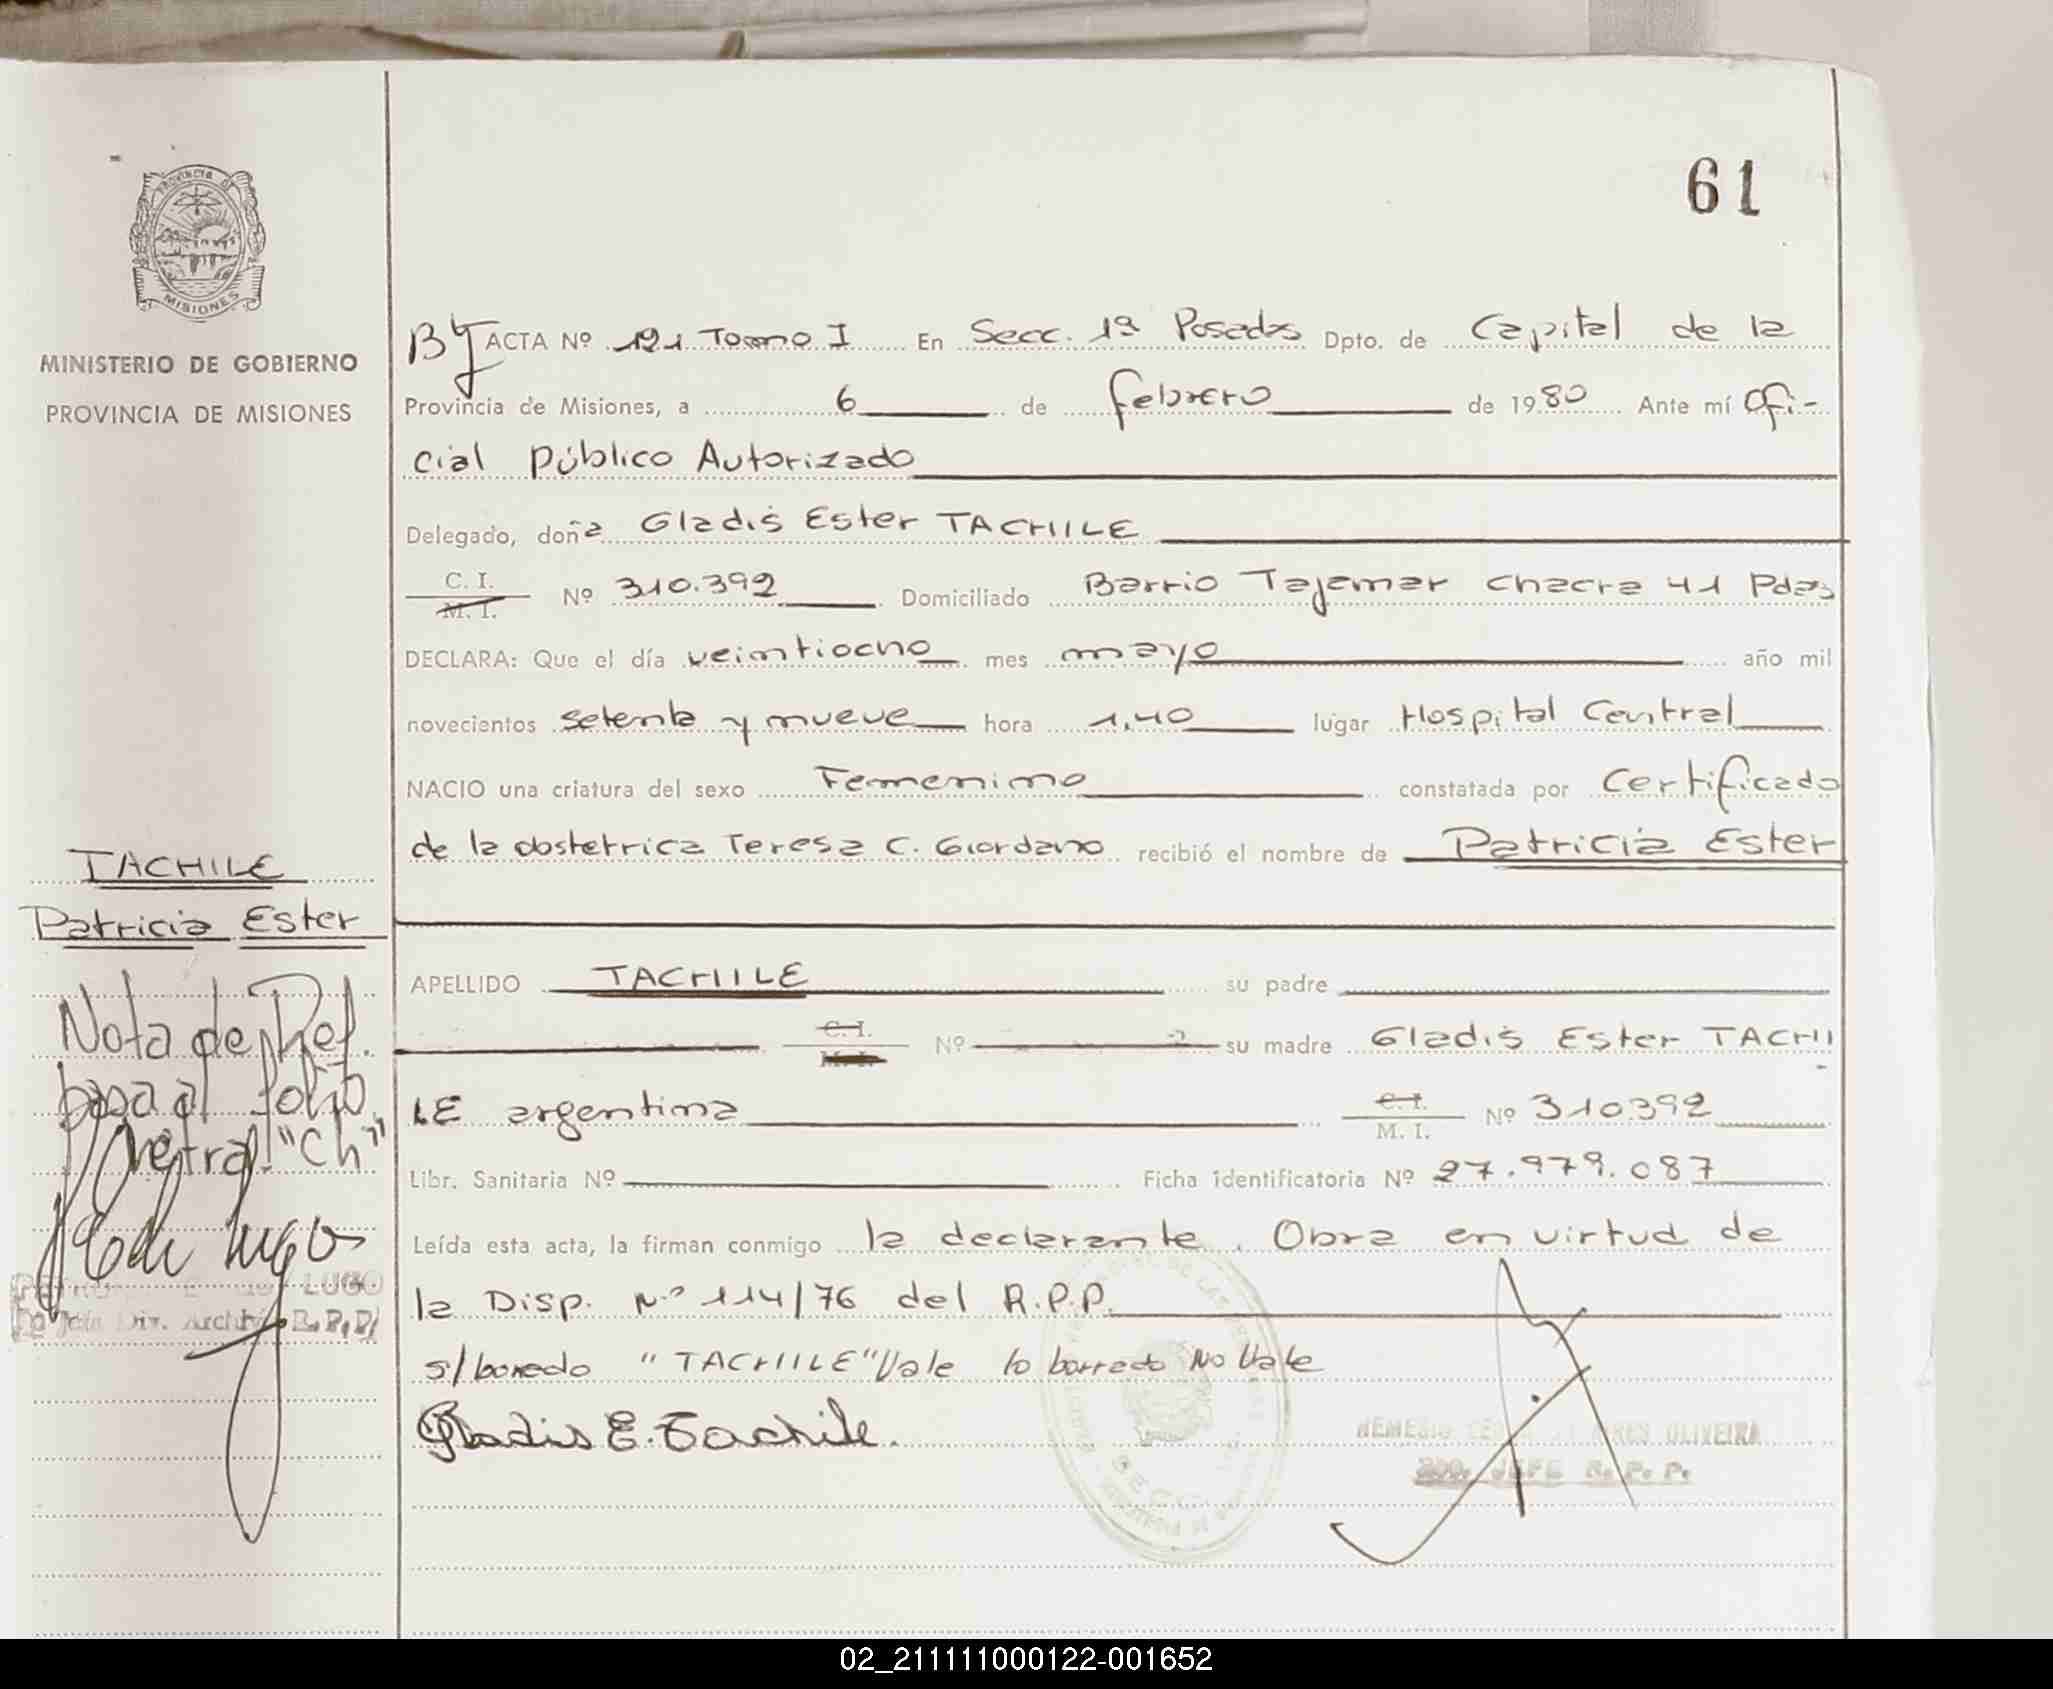 61
PROVINCIA DE
MISIONES
MINISTERIO DE GOBIERNO
PROVINCIA DE MISIONES
ACTA Nº 121 Tomo I En Secc. 1ª Posadas Dpto. de Capital de la
Provincia de Misiones, a 6 de febrero de 1980 Ante mí Ofi-
cial Público Autorizado
Delegado, doña Gladis Ester TACHILE
C. I.
M. I.
Nº 310.392 Domiciliado Barrio Tajamar Chacra 41 Pdas
DECLARA: Que el día veintiocho mes mayo año mil
novecientos setenta y nueve hora 1,40 lugar Hospital Central
NACIO una criatura del sexo Femenino constatada por Certificado
de la obstetrica Teresa C. Giordano recibió el nombre de Patricia Ester
TACHILE
Patricia Ester
APELLIDO TACHILE su padre
C. I.
M. I.
Nº su madre Gladis Ester TACHI
LE argentina C. I.
M. I.
Nº 310392
Libr. Sanitaria Nº Ficha identificatoria Nº 27.979.087
Leída esta acta, la firman conmigo la declarante. Obra en virtud de
la Disp. Nº 114/76 del R.P.P.
s/borrado "TACHILE" Vale lo borrado No Vale
Gladis E. Tachile.
Nota de Ref.
pasa al folio
"Ch"
LUGO
Div. Archivo R.P.P.
OLIVEIRA
JEFE R. P. P.
02_211111000122-001652